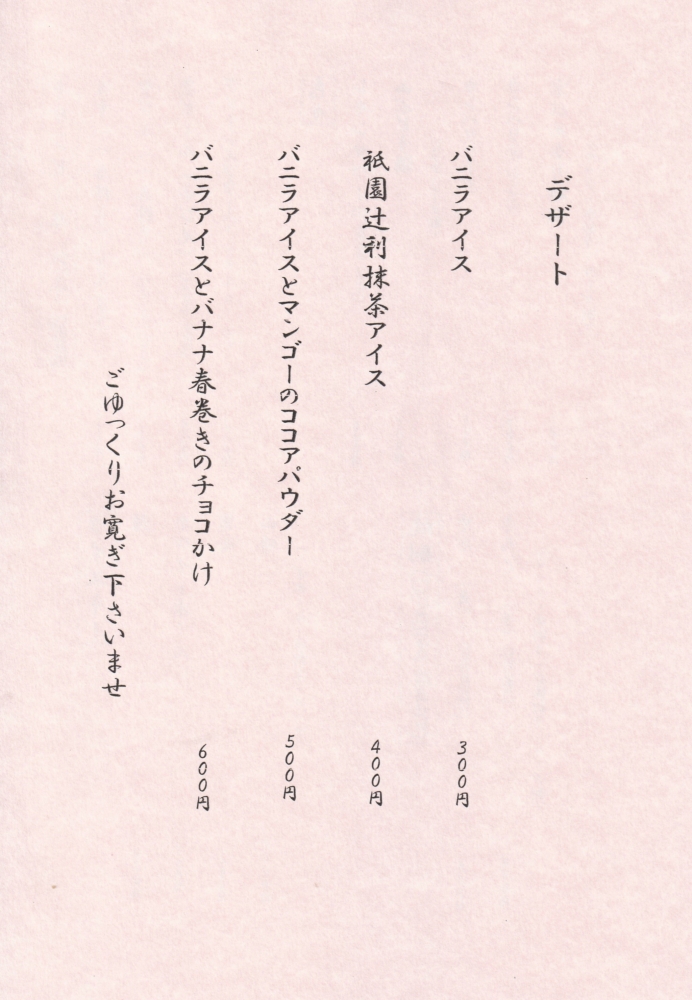 デザート
バニラアイス 300円
祇園辻利抹茶アイス 400円
バニラアイスとマンゴーのココアパウダー 500円
バニラアイスとバナナ春巻きのチョコかけ 600円
ごゆっくりお寛ぎ下さいませ